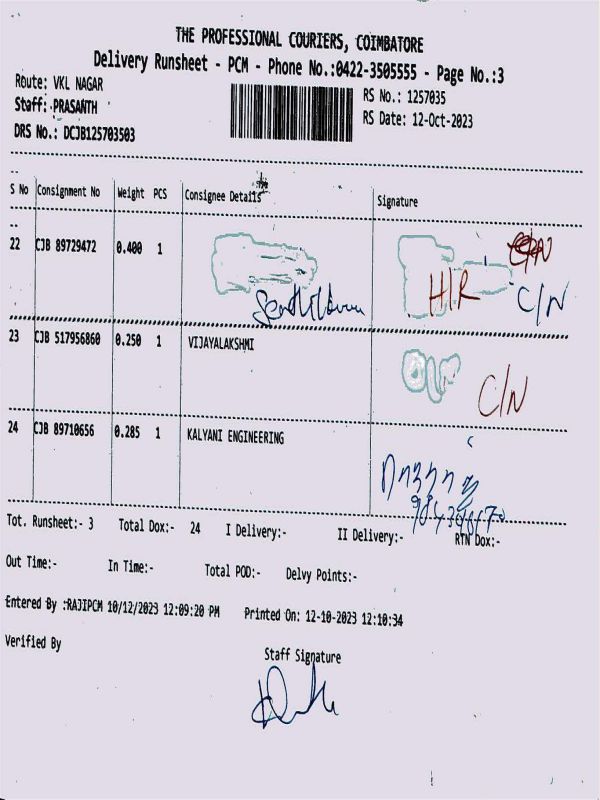 THE PROFESSIONAL COURIERS, COIMBATORE
Delivery Runsheet - PCM - Phone No.:0422-3505555 - Page No.:3
Route: VKL NAGAR
RS No.: 1257035
Staff: PRASANTH
RS Date: 12-Oct-2023
DRS No.: DCJB125703503
S No Consignment No Weight PCS Consignee Details Signature
22 CJB 89729472 0.400 1
H/R C/N
23 CJB 517956860 0.250 1 VIJAYALAKSHMI
C/N
24 CJB 89710656 0.285 1 KALYANI ENGINEERING
Tot. Runsheet:- 3 Total Dox:- 24 I Delivery:- II Delivery:- RTN Dox:-
Out Time:- In Time:- Total POD:- Delvy Points:-
Entered By :RAJIPCM 10/12/2023 12:09:20 PM Printed On: 12-10-2023 12:10:34
Verified By
Staff Signature